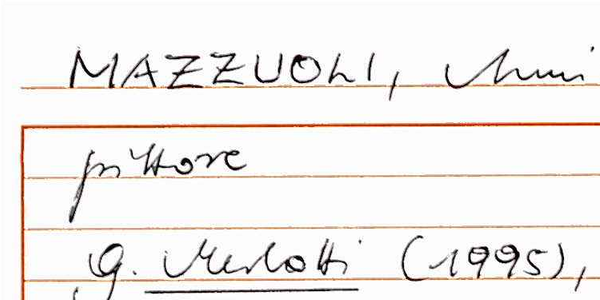 MAZZUOLI, Anni
pittore
G. Merlotti (1995),